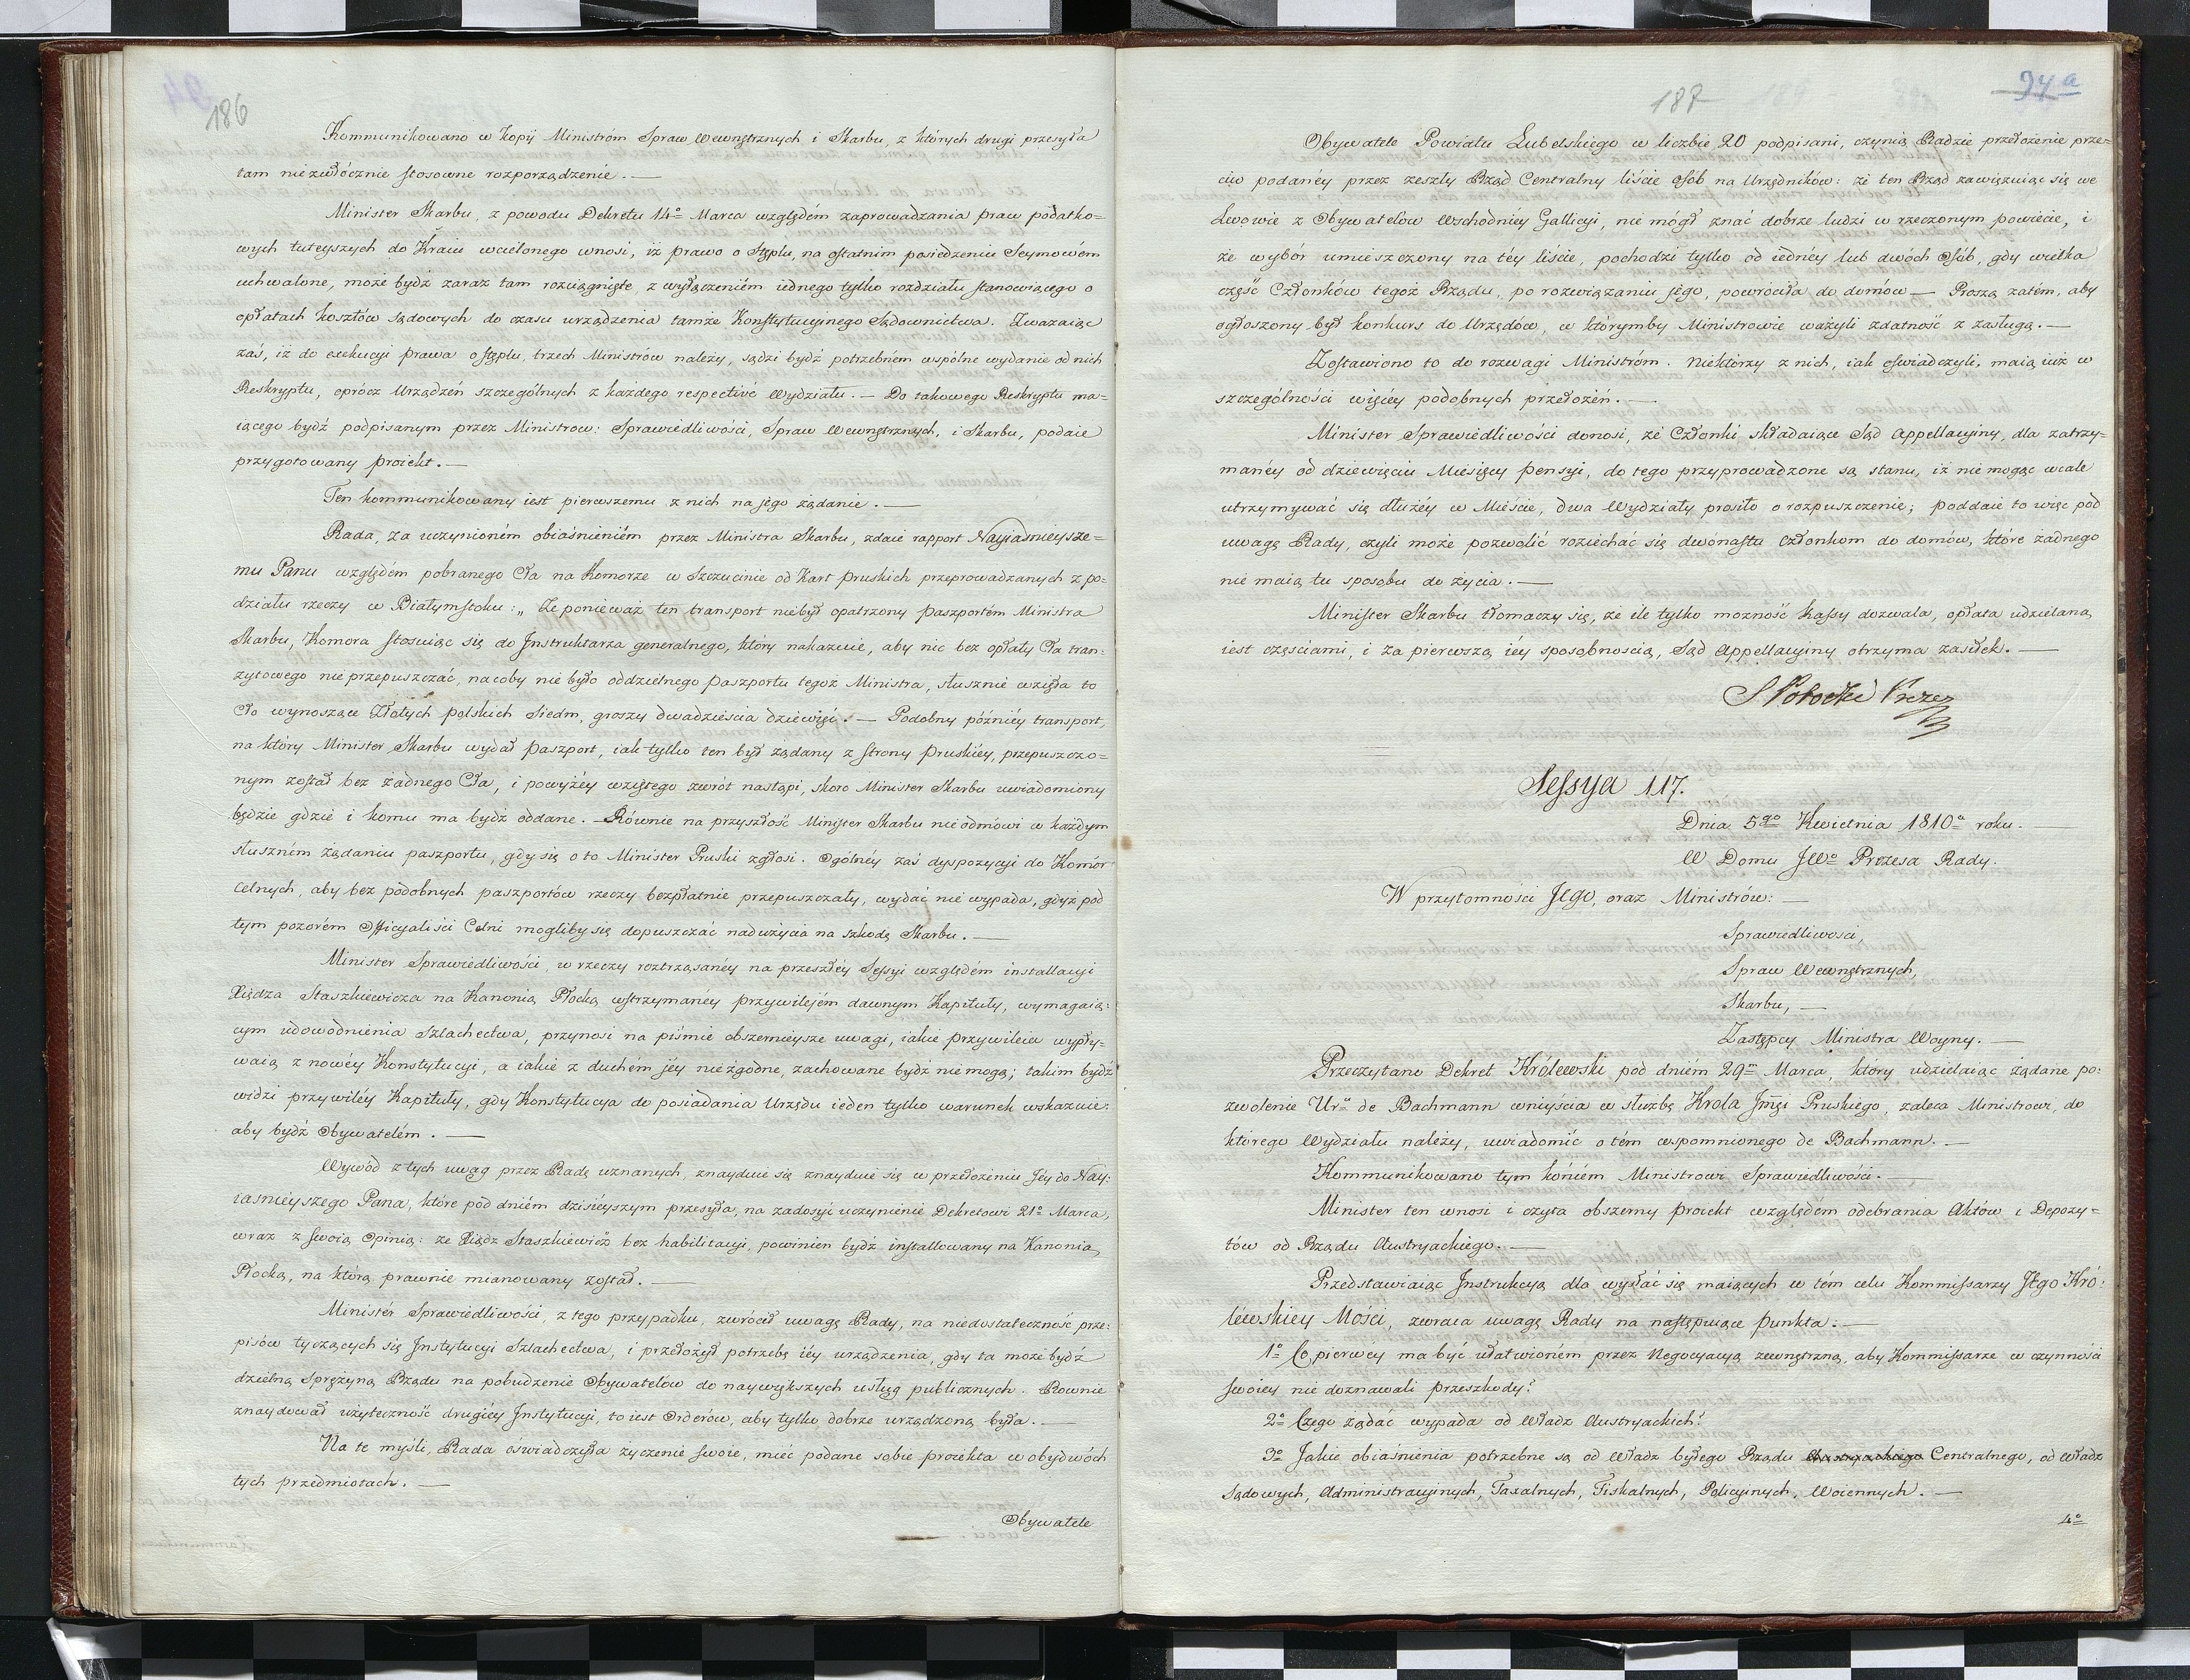 186
Kommunikowano w kopij Ministróm Spraw Wewnętrznych i Skarbu, z których drugi przesyła
tam niezwłócznie stosowne rozporządzenie. —
Minister Skarbu, z powodu Dekretu 14º Marca względém zaprowadzania praw podatko=
wych tuteyszych do Kraiu wcielonego wnosi, iż prawo o Stęplu, na ostatnim posiedzeniu Seymowém
uchwalone, może bydź zaraz tam rozciągnięte, z wyłączeniém iednego tylko rozdziału stanowiącego o
opłatach kosztów sądowych do czasu urządzenia tamże Konstytucyinego Sądownictwa. Zważaiąc
zaś, iż do exekucyi prawa o stęplu, trzech Ministrów należy, sądzi bydź potrzebném wspólne wydanie od nich
Reskryptu, oprócz Urządzeń szczególnych z każdego respectivé Wydziału. — Do takowego Reskryptu ma=
iącego bydź podpisanym przez Ministrow: Sprawiedliwości, Spraw Wewnętrznych, i Skarbu, podaie
przygotowany proiekt. —
Ten kommunikowany iest pierwszemu z nich na Jego żądanie. —
Rada, za uczynioném obiaśnieniém przez Ministra Skarbu, zdaie rapport Nayiaśnieysze=
mu Panu względém pobranego Cła na Komorze w Szczucinie od Kart pruskich przeprowadzanych z po=
działu rzeczy w Białymstoku: „ Że ponieważ ten transport niebył opatrzony paszportém Ministra
Skarbu, Komora stosuiąc się do Jnstruktarza generalnego, który nakazuie, aby nic bez opłaty Cła tran=
zytowego nie przepuszczać, na coby nie było oddzielnego paszportu tegoż Ministra, słusznie wzięła to
Cło wynoszące Złotych polskich siedm, groszy dwadzieścia dziewięć. — Podobny pózniéy transport,
na który Minister Skarbu wydał paszport, iak tylko ten był żądany z strony pruskiéy, przepuszczo=
nym został bez żadnego Cła, i powyżéy wziętego zwrót nastąpi, skoro Minister Skarbu uwiadomiony
będzie gdzie i komu ma bydź oddane. — Równie na przyszłość Minister Skarbu nie odmówi w każdym
słuszném żądaniu paszportu, gdy się o to Minister Pruski zgłosi. Ogólnéy zaś dyspozycyi do Komór
Celnych, aby bez podobnych paszportów rzeczy bezpłatnie przepuszczały, wydać nie wypada, gdyż pod
tym pozorém Officyaliści Celni mogliby się dopuszczać nadużycia na szkodę Skarbu. —
Minister Sprawiedliwości, w rzeczy roztrząsanéy na przeszłéy Sessyi względém installacyi
Xiędza Staszkiewicza na Kanonią Płocką wstrzymanéy przywilejém dawnym Kapituły, wymagaią=
cym udowodnienia Szlachectwa, przynosi na piśmie obszernieysze uwagi, iakie przywileia wypły=
waią z nowéy Konstytucyi, a iakie z duchém jéy niezgodne, zachowane bydź nie mogą; takim bydź
widzi przywiléy Kapituły, gdy Konstytucya do posiadania Urzędu ieden tylko warunek wskazuie:
aby bydź Obywatelém. —
Wywód z tych uwag przez Radę uznanych, znayduie się znayduie się w przełożeniu Jéy do Nay=
iaśnieyszego Pana, które pod dniém dzisieyszym przesyła, na zadosyć uczynienie Dekretowi 21º Marca,
wraz z swoią Opinią: że Xiądz Staszkiewicz bez habilitacyi, powinien bydź installowany na Kanonią
Płocką, na którą prawnie mianowany został. —
Ministér Sprawiedliwości, z tego przypadku, zwrócił uwagę Rady, na niedostateczność prze=
pisów tyczących się Jnstytucyi Szlachectwa, i przełożył potrzebę iéy urządzenia, gdy ta może bydź
dzielną sprężyną Rządu na pobudzenie Obywatelów do naywiększych usług publicznych. Rownie
znaydował użyteczność drugiéy Jnstytucyi, to iest Orderów, aby tylko dobrze urządzoną była. —
Na te myśli, Rada oświadczyła życzenie swoie, mieć podane sobie proiekta w obydwóch
tych przedmiotach. —
Obywatele
187
94a
Obywatele Powiatu Lubelskiego w liczbie 20 podpisani, czynią Radzie przełożenie prze=
ciw podanéy przez zeszły Rząd Centralny liście osób na Urzędników: że ten Rząd zawięzuiąc się we
Lwowie z Obywatelów Wschodniéy Gallicyi, nie mógł znać dobrze ludzi w rzeczonym powiecie, i
że wybór umieszczony na téy liście, pochodzi tylko od iednéy lub dwóch osób, gdy wielka
część Członków tegoż Rządu, po rozwiązaniu Jego, powróciła do domów — Proszą zatém, aby
ogłoszony był konkurs do Urzędów, w którymby Ministrowie ważyli zdatność z zasługą. —
Zostawiono to do rozwagi Ministróm. Niektórzy z nich, iak oświadczyli, maią iuż w
szczególności więcéy podobnych przełożeń. —
Minister Sprawiedliwości donosi, że Członki składaiące Sąd Appellacyiny, dla zatrzy=
manéy od dziewięciu Miesięcy pensyi, do tego przyprowadzone są stanu, iż nie mogąc wcale
utrzymywać się dłużéy w Mieście, dwa Wydziały prosiło o rozpuszczenie; poddaie to więc pod
uwagę Rady, czyli może pozwolić roziechać się dwónastu Członkom do domów, które żadnego
nie maią tu sposobu do życia. —
Minister Skarbu tłomaczy się, że ile tylko możność Kassy dozwala, opłata udzielaną
iest częściami, i za pierwszą iéy sposobnością, Sąd Appellacyiny otrzyma zasiłek. —
S Potocki Prezes
Sessya 117.
Dnia 5go Kwietnia 1810º roku. —
W Domu JWº Prezesa Rady.
W przytomności Jego, oraz Ministrów: —
Sprawiedliwości,
Spraw Wewnętrznych,
Skarbu, —
Zastępcy Ministra Woyny. —
Przeczytano Dekret Królewski pod dniém 29m Marca, który udzielaiąc żądane po=
zwolenie Urº de Bachmann wniyścia w służbę Krola Jmści Pruskiego, zaleca Ministrowi, do
którego Wydziału należy, uwiadomić o tém wspomnionego de Bachmann. —
Kommunikowano tym końcém Ministrowi Sprawiedliwości. —
Minister ten wnosi i czyta obszerny proiekt względém odebrania Aktów i Depozy=
tów od Rządu Austryackiego. —
Przedstawiaiąc Jnstrukcyą dla wysłać się maiących w tém celu Kommissarzy Jego Kró=
lewskiey Mości, zwraca uwagę Rady na następuiące punkta. —
1º Co pierwéy ma być ułatwioném przez Negocyacyą zewnętrzną, aby Kommissarze w czynności
swoiey nie doznawali przeszkody?
2º Czego żądać wypada od Władz Austryackich?
3º Jakie obiaśnienia potrzebne są od Władz byłego Rządu Austryackiego Centralnego, od Władz
Sądowych, Administracyinych, Taxalnych, Fiskalnych, Policyinych, Woiennych. —
4º